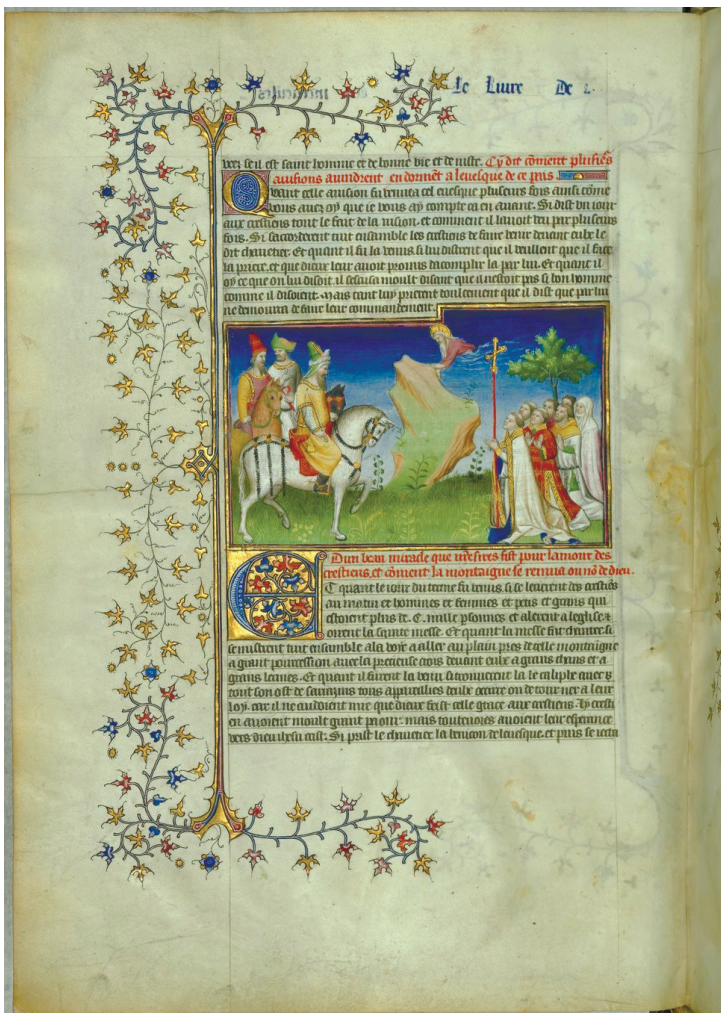 Le Livre De
veez se il est saint homme et de bonne vie et de niste. Cy dit cōment plusieurs
avisions avindrent en dormāt a levesque de ce pais
Quant celle avision fu venuta cel evesque plusieurs fois ainsi cōme
vous avez oy que ie vous ay compte ca en avant. Si dist un iour
aux crestiens tout le fait de la vision. et comment il lavoit veu par plusieurs
fois. Si sacorderent tuit ensamble les crestiens de faire venir devant eulx le
dit chavetier. Et quant il fu la venus. si lui distrent que il veullent que il face
la priere. et que dieux leur avoit promis dacomplir la par lui. Et quant il
oy ce que on lui disoit. il sescusa moult disant que il nestoit pas si bon homme
comme il disoient. Mais tant lui prierent doulcement que il dist que par lui
ne demourra de faire leur commandement.
Dun beau miracle que nr̄e sires fist pour lamour des
crestiens. et cōment la montaigne se remua ou nō de dieu.
Et quant le iour du terme fu venus. si se leverent les crestiēs
au matin et hommes et femmes et petis et grans qui
estoient plus de .C. mille psonnes et alerent a leglise et
oirent la sainte messe. Et quant la messe fut chantee si
se mistrent tuit ensamble a la voie a aller au plain pres de celle montaigne
a grant pourcession avec la precieuse crois devant eulx a grans chans et a
grans lermes. Et quant il furent la venu si trouverent la le caliphe avec
tout son ost de sarrazins tous appareilles deulx occirre ou de tourner a leur
loy. car il ne cuidoient mie que dieux feist celle grace aux crestiens. Hz cresti
en avoient moult grant paour. mais toutevoies avoient leur esperance
vers dieu ihesu crist. Si prist le chavetier la beneicon de levesque. et puis se ietta